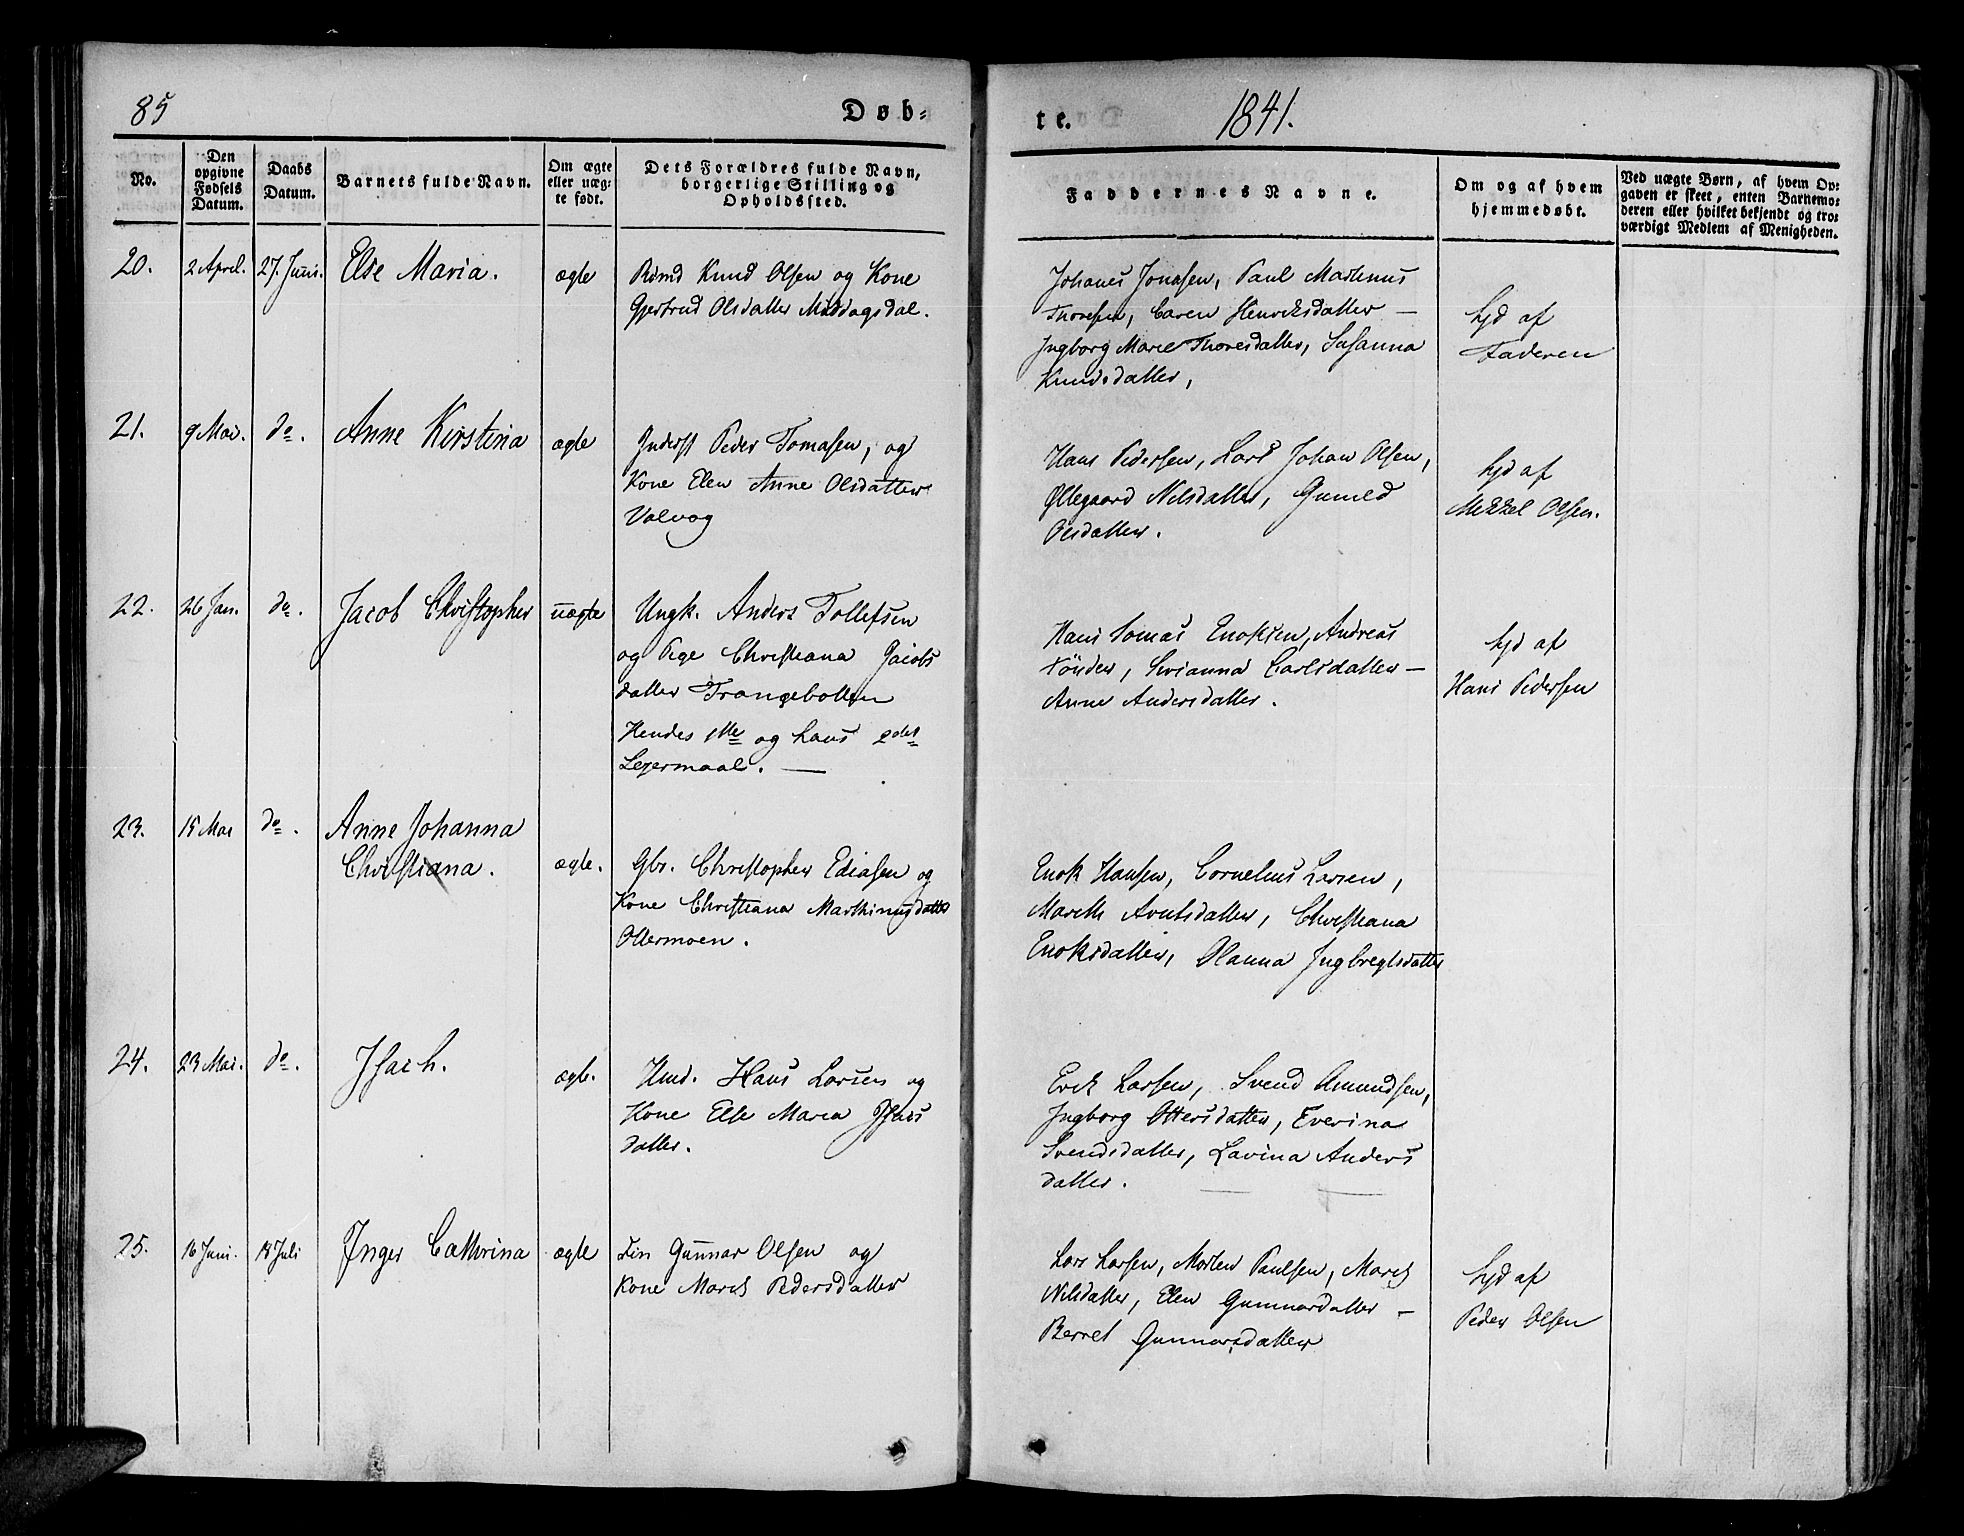 85
Døb=
te.
1841.
No.
Den opgivne Fødsels Datum.
Daabs Datum.
Barnets fulde Navn.
Om ægte eller uæg- te født.
Dets Forældres fulde Navn, borgerlige Stilling og Opholdssted.
Faddernes Navne.
Om og af hvem hjemmedøbt.
Ved uægte Børn, af hvem Op=
gaven er skeet, enten Barnemo=
deren eller hvilket bekjendt og tro=
værdigt Medlem af Menigheden.
20.
2 April.
27. Juni.
Else Maria.
ægte
Rømd Knud Olsen og Kone
Gjertrud Olsdatter Middagsdal.
Johanes Jonasen, Paul Martinus
Thoresen, Caren Henriksdatter —
Ingborg Marie Thoresdatter, Susanna
Knudsdatter,
hjd af
Faderen
21.
9 Mai.
do.
Anne Kirstina
ægte
Inderst Peder Tomasen, og
Kone Elen Anne Olsdatter
Valvog
Hans Pedersen, Lars Johan Olsen,
Ollegaard Nilsdatter, Guneld
Olsdatter.
hjd af
Mikkel Olsen.
22.
26 Jan.
do.
Jacob Christopher
uægte
Ungk. Anders Tollefsen
og Pige Christiana Jacobs
datter Trangebotten
Hendes 1ste og hans 2det
Lejermaal. —
Hans Tomas Enoksen, Andreas
Tönder, Carlsdatter —
Anne Andersdatter.
hjd af
Hans Pedersen
23.
15 Mai
do.
Anne Johanna
Christiana.
ægte.
Gbr. Christopher Ediasen og
Kone Christiana Marthinusdatter
Ottermoen.
Enok Hansen, Cornelius Larsen,
Marith Arntsdatter, Christiana
Enoksdatter, Olanna Ingbregtsdatter
24.
23 Mai.
do.
Isach.
ægte.
Hmd. Hans Larsen og
Kone Else Maria Isacs
datter.
Erik Larsen, Svend Amundsen,
Ingborg Ottersdatter, Everina
Svendsdatter, Lavina Anders
datter.
25.
16 Juni.
18 Juli
Inger Cathrina
ægte
Fin Gunnar Olsen og
Kone Marit Pedersdatter
Lars Larsen, Morten Paulsen, Marit
Nilsdatter, Elen Gunnardatter —
Berret Gunnarsdatter
hjd af
Peder Olsen